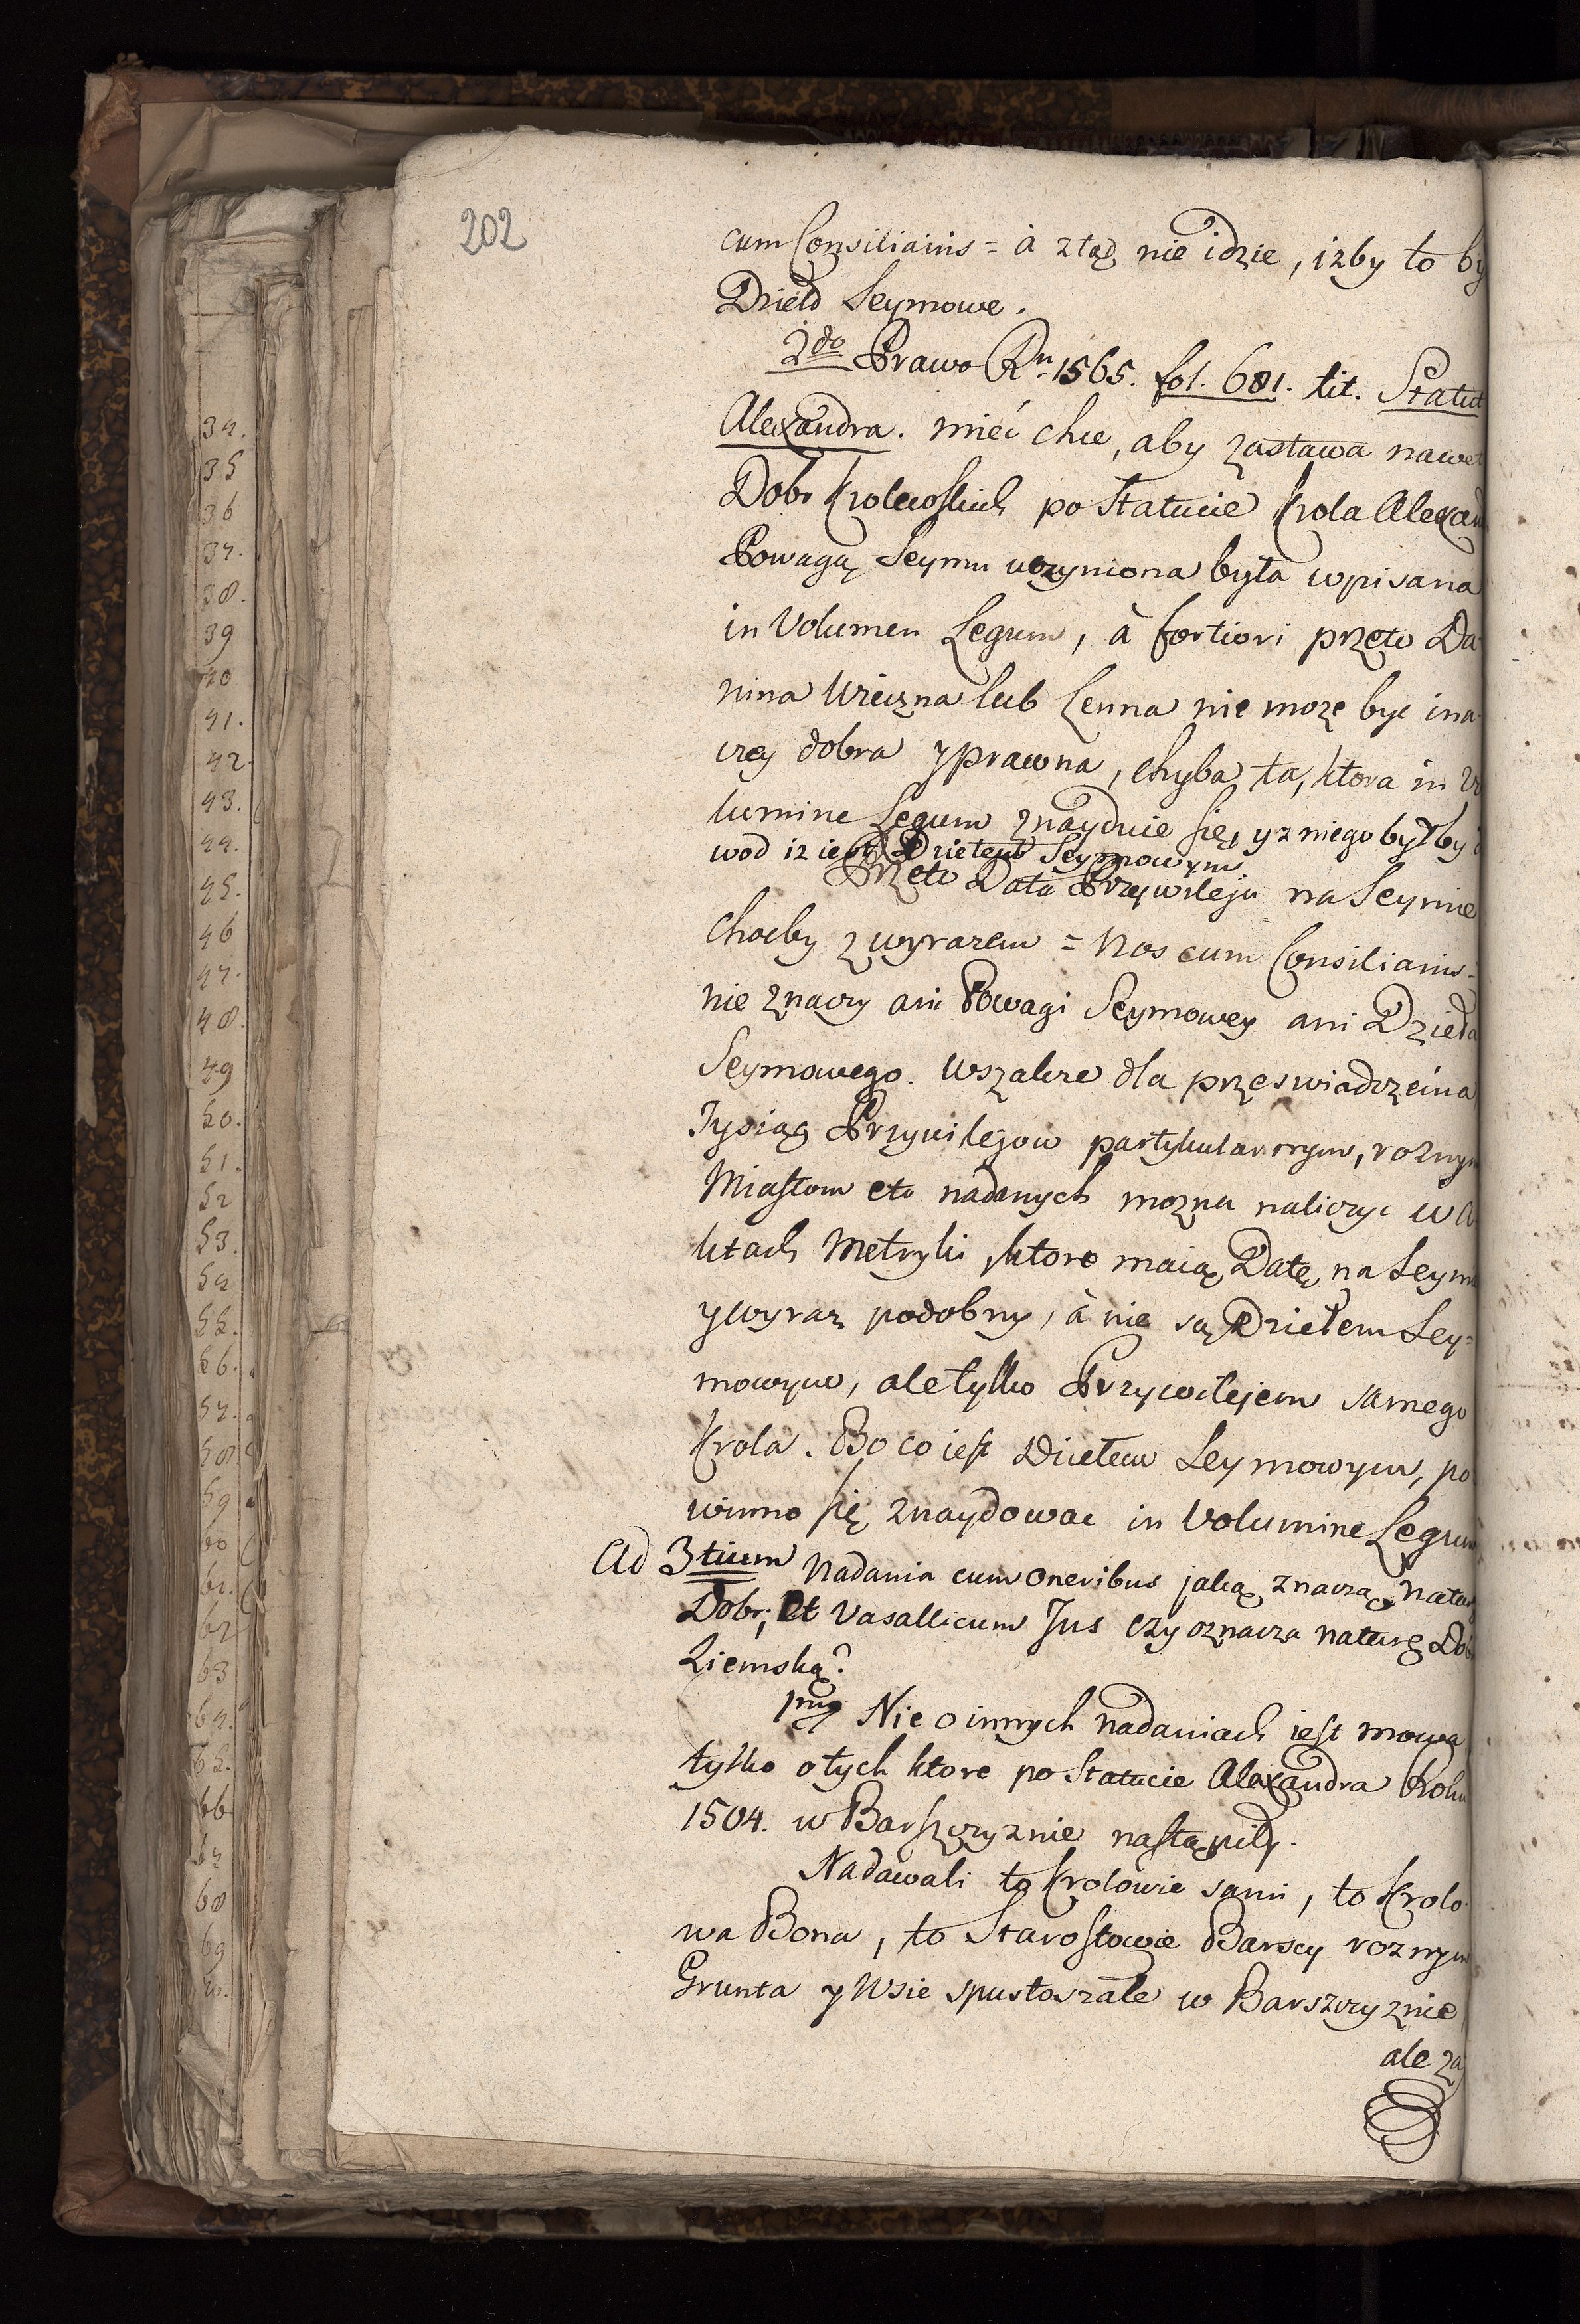 202
cum Consiliariis = à ztąd nie idzie, iżby to by
Dzieło Seymowe.
2do Prawo Rn 1565. fol. 681. tit. Statut
Alexandra. mieć chce, aby zastawa nawet
Dobr Krolewskich po Statucie Krola Alexan
Powagą Seymu uczyniona była wpisana
in Volumen Legum, à fortiori przeto Da
nina Wieczna lub Lenna nie może byc ina
czey dobra y prawna, chyba ta, ktora in Vo
lumine Legum znayduie się, y z niego byłby
wod iz iest Dziełem Seymowym
Przeto Data Przywileju na Seymie
choćby z wyrazem = Nos cum Consiliariis =
nie znaczy ani Powagi Seymowey ani Dzieła
Seymowego. Wszakze dla przeswiadczenia
Tysiąc Przywilejow partykularnym, roznym
Miastom etc nadanych mozna naliczyc w A
ktach Metryki, ktore maią Datę na Seym
y wyraz podobny, à nie są Dziełem Sey=
mowym, ale tylko Przywilejem samego
Krola. Bo co iest Dziełem Seymowym, po
winno się znaydowac in Volumine Legum
Ad 3tium Nadania cum oneribus jaką znaczą Natu
Dobr; Et Vasallicum Jus czy oznacza naturę Dob
Ziemską?
pmo Nie o innych nadaniach iest mowa
tylko o tych ktore po Statucie Alexandra Roku
1504. w Barszczyznie nastąpiły.
Nadawali to Krolowie sami, to Krolo
wa Bona, to Starostowie Barscy roznym
Grunta y Wsie spustoszałe w Barszczyznie
ale za
34.
35
36
37.
38.
39
40
41.
42.
43.
44.
45.
46
47.
48.
49
50.
51.
52
53.
54
55.
56.
57.
58
59
60
61.
62
63
64.
65.
66
67
68
69